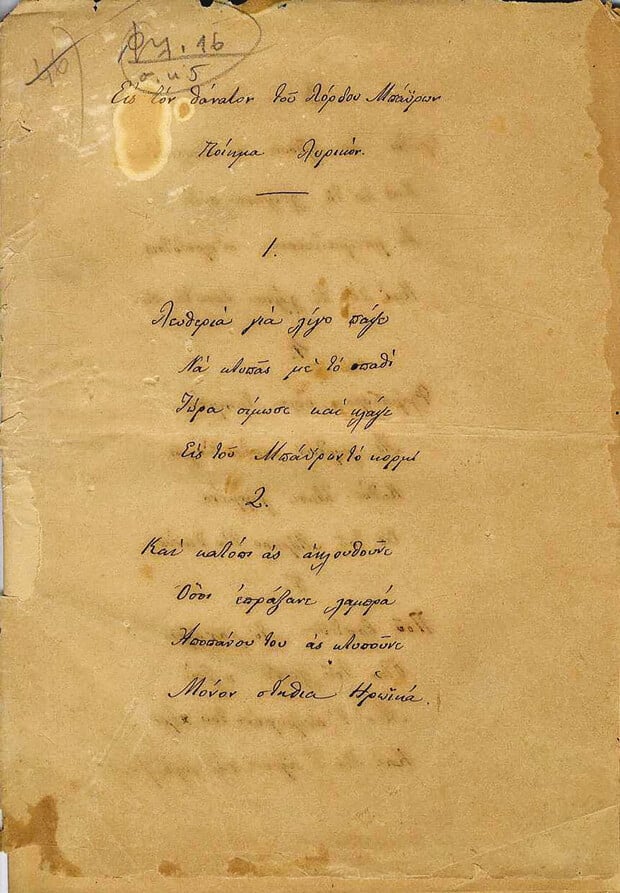 φυλ. 16
α. κ 5
Εἰς τὸν θάνατον τοῦ Λόρδου Μπάϋρων
Ποίημα Λυρικόν.
1.
Λευθεριὰ γιὰ λίγο πάψε
Νὰ κτυπᾷς μὲ τὸ σπαθὶ
Τώρα σίμωσε καὶ κλάψε
Εἰς τοῦ Μπάϋρον τὸ κορμί
2.
Καὶ κατόπι ἂς ἀκλουθοῦνε
Ὅσοι ἐπράξανε λαμπρὰ
Ἀποπάνου του ἂς κτυποῦνε
Μόνον στήθια Ἡρωϊκά.